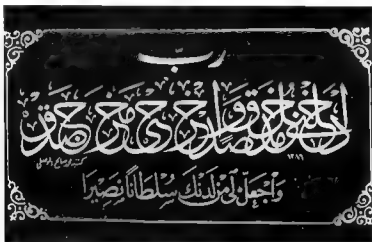 رب
ادخلني مدخل صدق واخرجني مخرج صدق
١٣٨٦
واجعل لي من لدنك سلطانًا نصيرًا